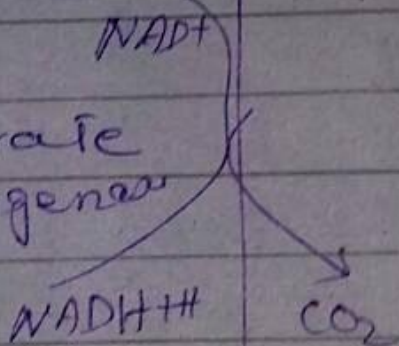 NAD+
ate
genase
NADH+H
CO2